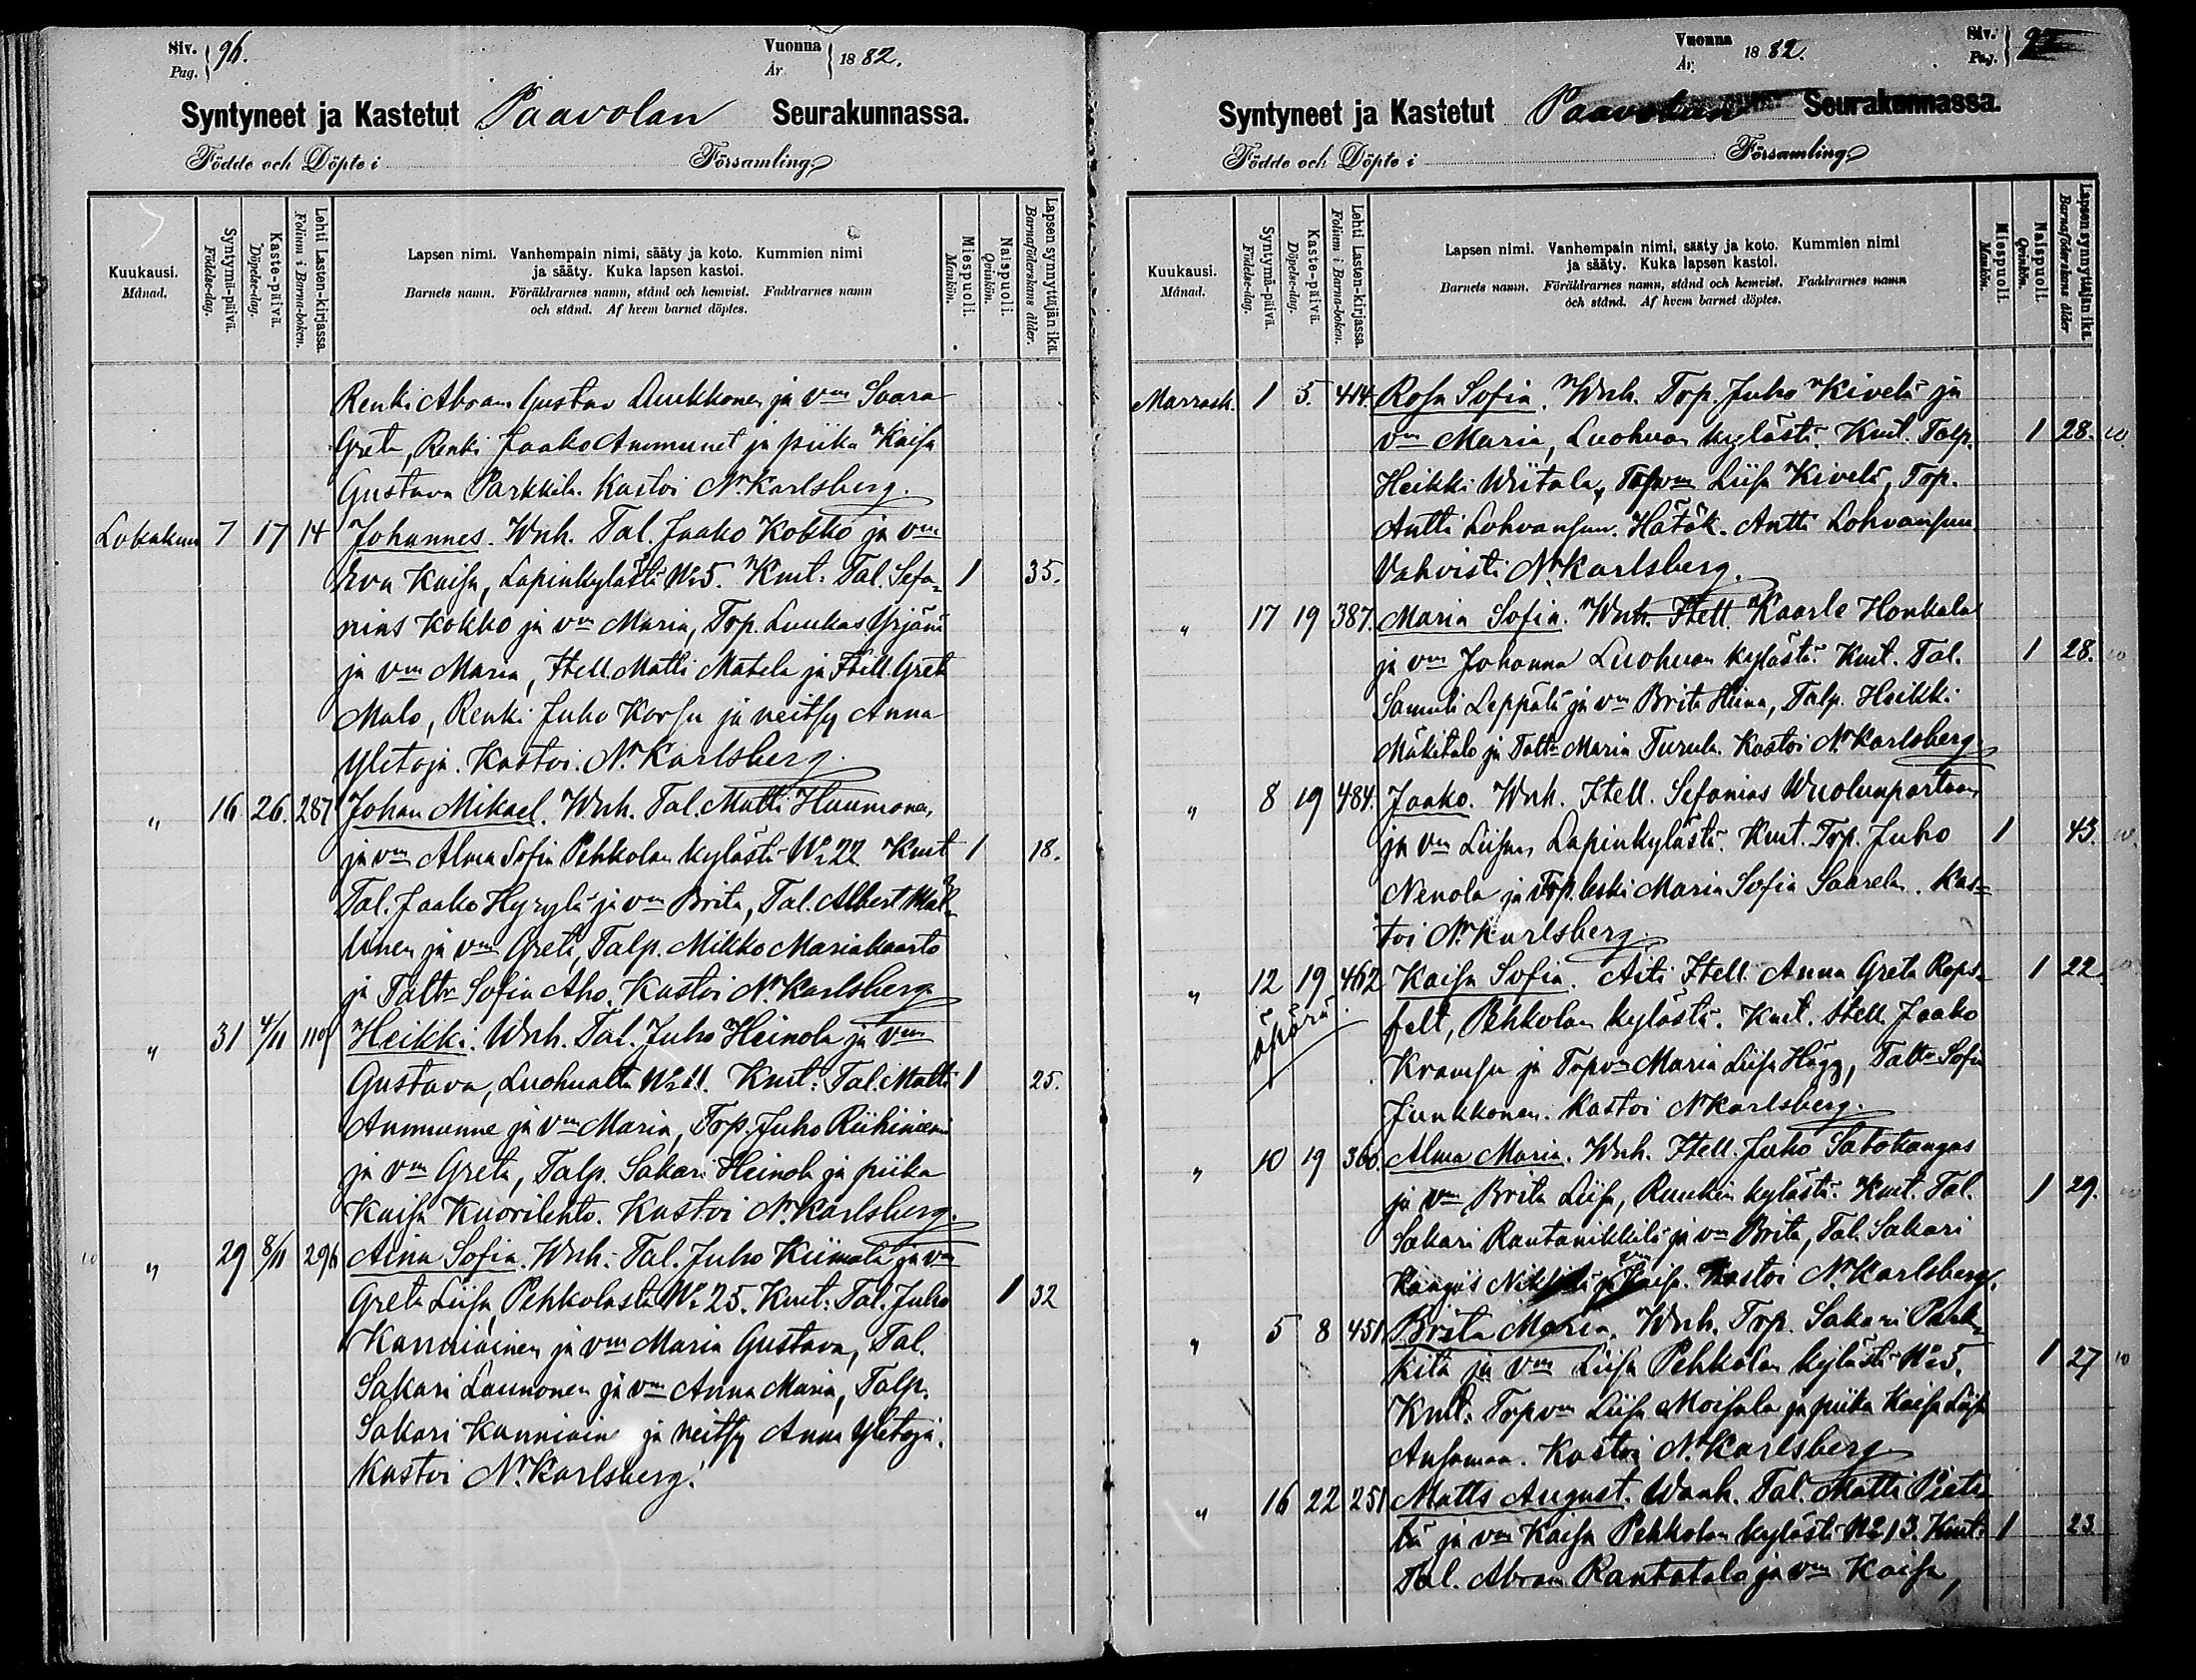 Siv. Pag. 96.
Vuonna År 1882.
Syntyneet ja Kastetut Paavolan Seurakunnassa.
Födde och Döpte i Församling.
Kuukausi. Månad.
Syntymä-päivä. Födelse-dag.
Kaste-päivä. Döpelse-dag.
Lehti Lasten-kirjassa. Folium i Barna-boken.
Lapsen nimi. Vanhempain nimi, sääty ja koto. Kummien nimi
ja sääty. Kuka lapsen kastoi.
Barnets namn. Föräldrarnes namn, stånd och hemvist. Faddrarnes namn
och stånd. Af hvem barnet döptes.
Miespuoli. Mankön.
Naispuoli. Qvinkön.
Lapsen synnyttäjän ikä. Barnaföderskans ålder.
Renki Abram Gustav Luukkonen ja vm Saara
Greta, Renki Jaako Ammunet ja piika Kaisa
Gustava Parkkila. Kastoi N. Karlsberg.
Lokakuu 7 17 14 Johannes. Wnh. Tal. Jaako Kokko ja vm
Eva Kaisa, Lapinkylästä No 5. Kmt: Tal. Sefa- 1 35.
nias Kokko ja vm Maria, Trp. Luukas Yrjänä
ja vm Maria, Itell. Matti Matela ja Itell. Greta
Malo, Renki Juho Korsu ja neitsy Anna
Yletoja. Kastoi N. Karlsberg.
" 16 26. 287 Johan Mikael. Wnh. Tal. Matti Huumonen
ja vm Alma Sofia Pehkolan kylästä No 22 Kmt 1 18.
Tal. Jaako Hyryla ja vm Brita, Tal. Albert Mäk-
linen ja vm Greta, Talp. Mikko Mariakaarto
ja Taltr Sofia Aho. Kastoi N. Karlsberg
" 31 4/11 110 Heikki. Wnh. Tal. Juho Heinola ja vm
Gustava, Luohualta No 11. Kmt: Tal. Matti 1 25.
Ammunne ja vm Maria, Trp. Juho Riihiniemi
ja vm Greta, Talp. Sakari Heinola ja piika
Kaisa Kuorilehto. Kastoi N. Karlsberg.
" 29 8/11 296 Aina Sofia. Wnh: Tal. Juho Kiimala ja vm
Greta Liisa, Pehkolasta No 25. Kmt: Tal. Juho 1 32
Kanniainen ja vm Maria Gustava, Tal.
Sakari Launonen ja vm Anna Maria, Talp.
Sakari Kanniain ja neitsy Anna Yletoja.
Kastoi N. Karlsberg.
Vuonna År 1882.
Siv. Pag.
Syntyneet ja Kastetut Paavolan Seurakunnassa.
Födde och Döpte i Församling.
Kuukausi. Månad.
Syntymä-päivä. Födelse-dag.
Kaste-päivä. Döpelse-dag.
Lehti Lasten-kirjassa. Folium i Barna-boken.
Lapsen nimi. Vanhempain nimi, sääty ja koto. Kummien nimi
ja sääty. Kuka lapsen kastoi.
Barnets namn. Föräldrarnes namn, stånd och hemvist. Faddrarnes namn
och stånd. Af hvem barnet döptes.
Miespuoli. Mankön.
Naispuoli. Qvinkön.
Lapsen synnyttäjän ikä. Barnaföderskans ålder
Marrask. 1 5. 414. Rosa Sofia. Wnh. Trp. Juho Kivelä ja
vm Maria, Luohuan kylästä. Kmt. Talp. 1 28.
Heikki Wiitala, Liisa Kivelä, Trp.
Antti Lohvansuu. Hätäk. Antti Lohvansuu
Vahvisti N. Karlsberg.
" 17 19 387. Maria Sofia. Wnh. Itell. Kaarle Honkala
ja vm Johanna Luohuan kylästä. Kmt. Tal. 1 28.
Samuli Leppälä ja vm Brita Stiina, Talp. Heikki
Mäkitalo ja Taltr Maria Turula. Kastoi N. Karlsberg
" 8 19 484. Jaako. Wnh. Itell. Sefanias Wuolunpartaan
ja vm Liisan Lapinkylästä. Kmt. Trp. Juho 1 43.
Nenola ja Trp. leski Maria Sofia Saarela. Kas-
toi N. Karlsberg.
" 12 19 462 Kaisa Sofia. Äiti Itell. Anna Greta Reps- 1 22
äpärä felt, Pehkolan kylästä. Kmt. Itell. Jaako
Kramsu ja Trp vm Maria Liisa Hägg, Taltr Sofia
Junkkonen. Kastoi N. Karlsberg.
" 10 19 360. Alma Maria. Wnh. Itell. Juho Salokangas
ja vm Brita Liisa, Ruukin kylästä. Kmt. Tal. 1 29.
Sakari Rantanikkilä ja vm Brita, Tal. Sakari
Kangas ja vm Kaisa. Kastoi N. Karlsberg.
" 5 8 451 Brita Maria. Wnh. Trp. Sakari Park-
kila ja vm Liisa Pehkolan kylästä No 5. 1 27
Kmt. Trp vm Liisa Moisala ja piika Kaisa Liisa
Ansamaa. Kastoi N. Karlsberg
" 16 22 251 Matts August. Wanh. Tal. Matti Pieti-
lä ja vm Kaisa Pehkolan kylästä No 13. Kmt: 1 23
Tal. Abram Rantatalo ja vm Kaisa,